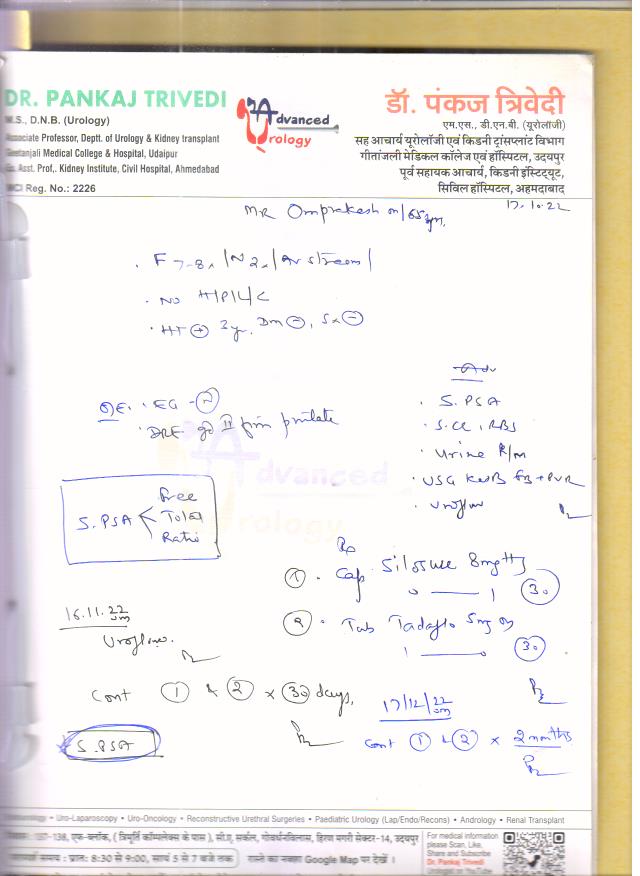 DR. PANKAJ TRIVEDI
M.S., D.N.B. (Urology)
Associate Professor, Deptt. of Urology & Kidney transplant
Geetanjali Medical College & Hospital, Udaipur
Ex. Asst. Prof., Kidney Institute, Civil Hospital, Ahmedabad
MCI Reg. No.: 2226
Advanced
Urology
डॉ. पंकज त्रिवेदी
एम.एस., डी.एन.बी. (यूरोलॉजी)
सह आचार्य यूरोलॉजी एवं किडनी ट्रांसप्लांट विभाग
गीतांजली मेडिकल कॉलेज एवं हॉस्पिटल, उदयपुर
पूर्व सहायक आचार्य, किडनी इंस्टिट्यूट,
सिविल हॉस्पिटल, अहमदाबाद
17.10.22
MR Omprakash m/65yr,
F 7-8x /N 2x/ Av stream/
No H/P/L/C
HT + 3y, Dm -, Sx -
O/E. EG - N
DRE gd II firm prostate
Adv
S. PSA
S. Cr, RBS
Urine R/m
USG KUB + PVR
Uroflow
S. PSA Free
Total
Ratio
Advanced
Urology
Rx
1 Cap Silosure 8mg
0 — 1 30
2 Tab Tadaflo 5mg
1 — 0 30
16.11.22
Uroflow.
Cont 1 & 2 x 30 days,
S. PSA
17/12/22
Cont 1 & 2 x 2 months
• Uro-Laparoscopy • Uro-Oncology • Reconstructive Urethral Surgeries • Paediatric Urology (Lap/Endo/Recons) • Andrology • Renal Transplant
137-138, एफ-ब्लॉक, ( त्रिमूर्ति कॉम्पलेक्स के पास ), सी.ए. सर्कल, गोवर्धनविलास, हिरण मगरी सेक्टर-14, उदयपुर
समय : प्रातः 8:30 से 9:00, सायं 5 से 7 बजे तक रास्ते का नक्शा Google Map पर देखें ।
For medical information
please Scan, Like,
Share and Subscribe
Dr. Pankaj Trivedi
Urologist on YouTube